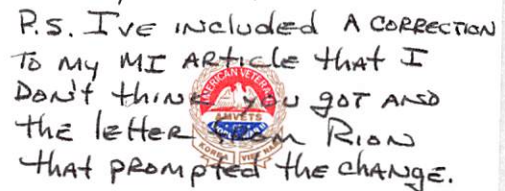 P.S. I'VE INCLUDED A CORRECTION
TO MY MI ARTICLE THAT I
DON'T THINK YOU GOT AND
THE LETTER FROM RION
THAT PROMPTED THE CHANGE.
AMERICAN VETERANS
AMVETS
WORLD WAR II
KOREA VIET NAM